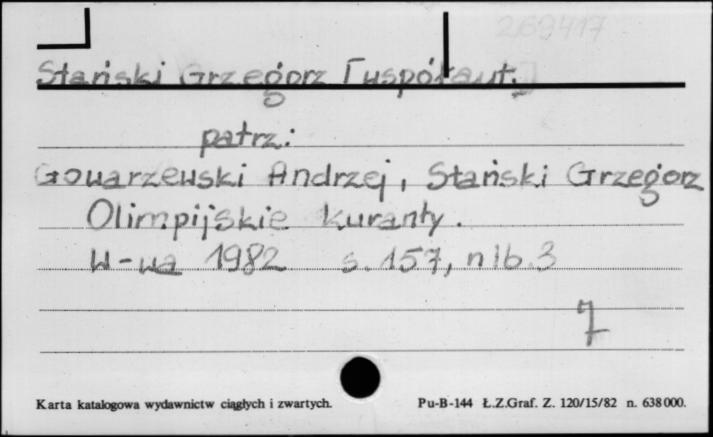 269417
Stański Grzegorz [współaut.]
patrz:
Gowarzewski Andrzej, Stański Grzegorz
Olimpijskie kuranty.
W-wa 1982 s. 157, nlb. 3
7
Karta katalogowa wydawnictw ciągłych i zwartych. Pu-B-144 Ł.Z.Graf. Z. 120/15/82 n. 638 000.